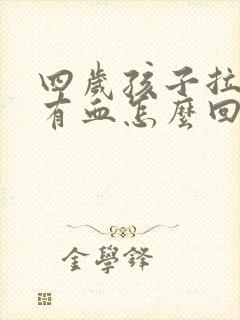 四歲孩子拉
有血怎麼回
金學鋒